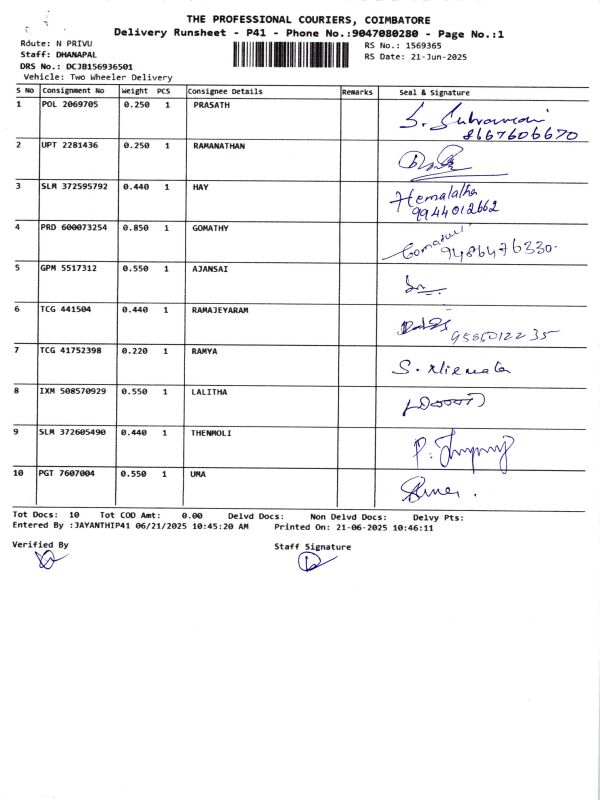 THE PROFESSIONAL COURIERS, COIMBATORE
Delivery Runsheet - P41 - Phone No.:9047080280 - Page No.:1
Rdute: N PRIVU
RS No.: 1569365
Staff: DHANAPAL
RS Date: 21-Jun-2025
DRS No.: DCJB156936501
Vehicle: Two Wheeler Delivery
S No Consignment No Weight PCS Consignee Details Remarks Seal & Signature
1 POL 2069705 0.250 1 PRASATH S. Subramani
8667606670
2 UPT 2281436 0.250 1 RAMANATHAN
3 SLM 372595792 0.440 1 HAY Hemalatha
9944012662
4 PRD 600073254 0.850 1 GOMATHY 9486476330.
5 GPM 5517312 0.550 1 AJANSAI
6 TCG 441504 0.440 1 RAMAJEYARAM 9585012235
7 TCG 41752398 0.220 1 RAMYA S. Nirmala
8 IXM 508570929 0.550 1 LALITHA
9 SLM 372605490 0.440 1 THENMOLI P.
10 PGT 7607004 0.550 1 UMA
Tot Docs: 10 Tot COD Amt: 0.00 Delvd Docs: Non Delvd Docs: Delvy Pts:
Entered By :JAYANTHIP41 06/21/2025 10:45:20 AM Printed On: 21-06-2025 10:46:11
Verified By Staff Signature